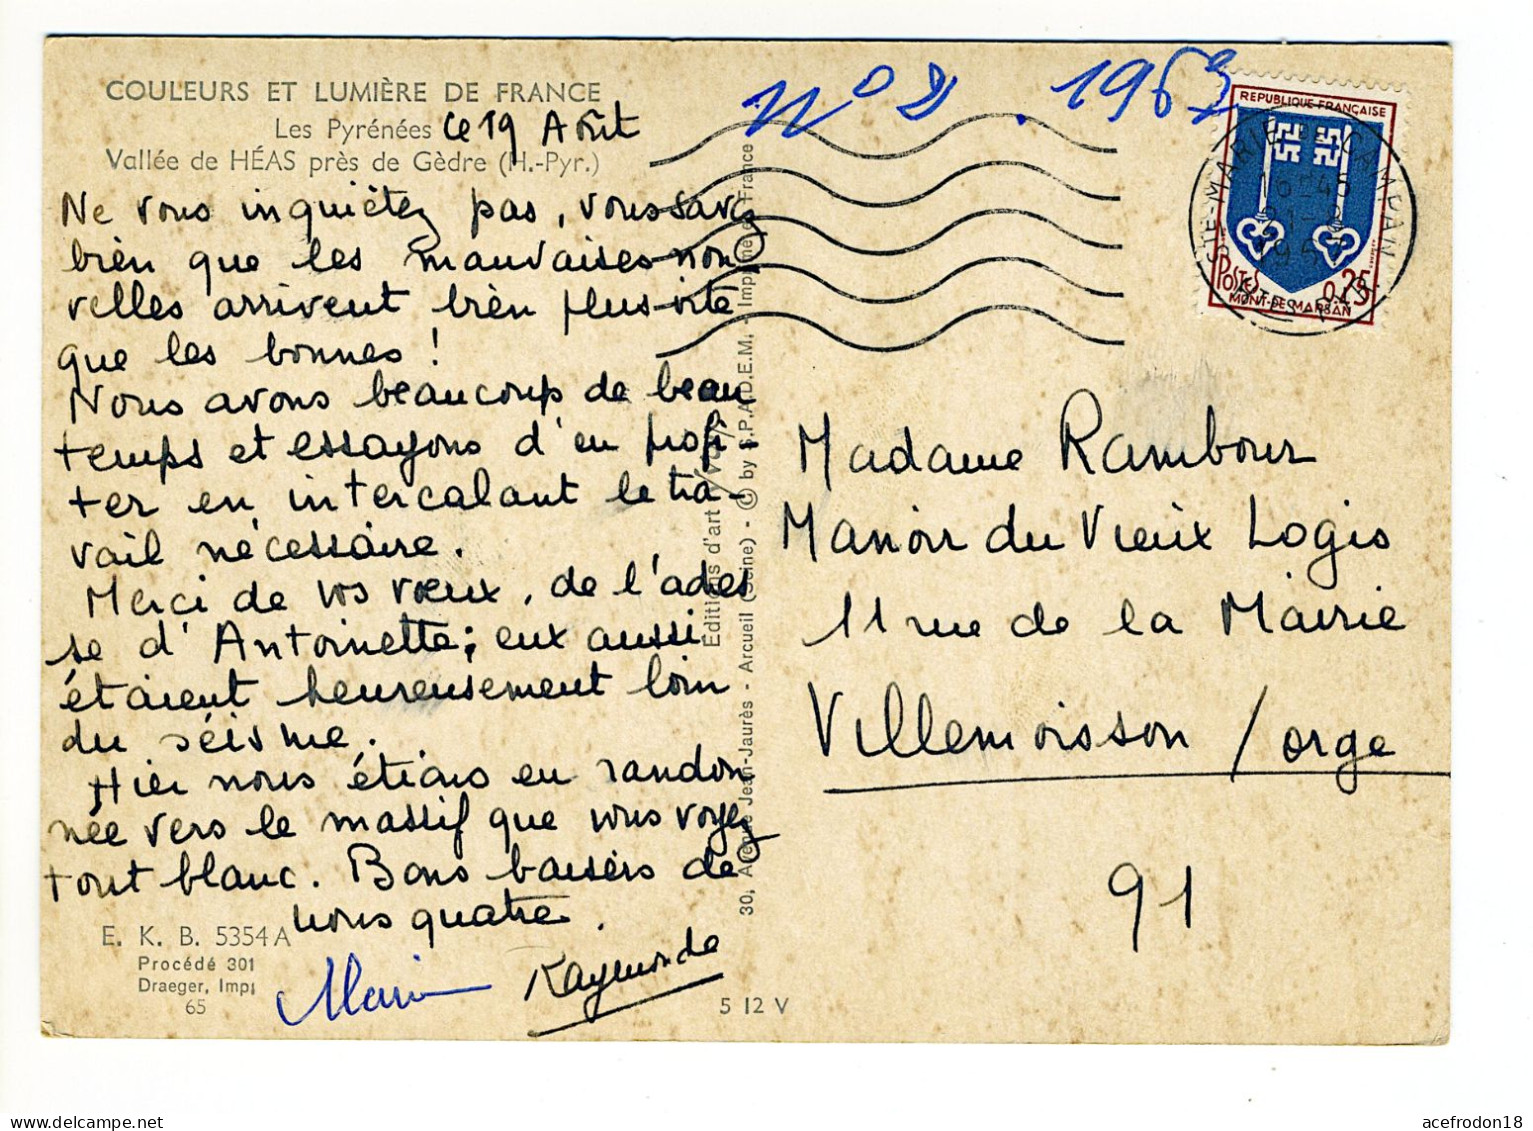 COULEURS ET LUMIÈRE DE FRANCE
Les Pyrénées
Vallée de HÉAS près de Gèdre (H.-Pyr.)
le 19 Août
Ne vous inquiétez pas, vous savez
bien que les mauvaises nou
velles arrivent bien plus vite
que les bonnes !
Nous avons beaucoup de beau
temps et essayons d'en profi-
ter en intercalant le tra-
vail nécessaire.
Merci de vos vœux, de l'adres
se d'Antoinette ; eux aussi
étaient heureusement loin
du séisme.
Hier nous étions en randon
née vers le massif que vous voyez
tout blanc. Bons baisers de
nous quatre.
Raymonde
E. K. B. 5354 A
Procédé 301
Draeger, Imp.
65
5 12 V
Éditions d'art
30, Avenue Jean-Jaurès - Arcueil (Seine) - © by S.P.A.D.E.M. - Imprimé en France
N° 8 . 1967
REPUBLIQUE FRANÇAISE
POSTES
0,25
MONT-DE-MARSAN
STE-MARIE-DE-CAMPAN
HTES PYR.
16H45
Madame Rambour
Manoir du Vieux Logis
11 rue de la Mairie
Villemoisson / orge
91
acefrodon18